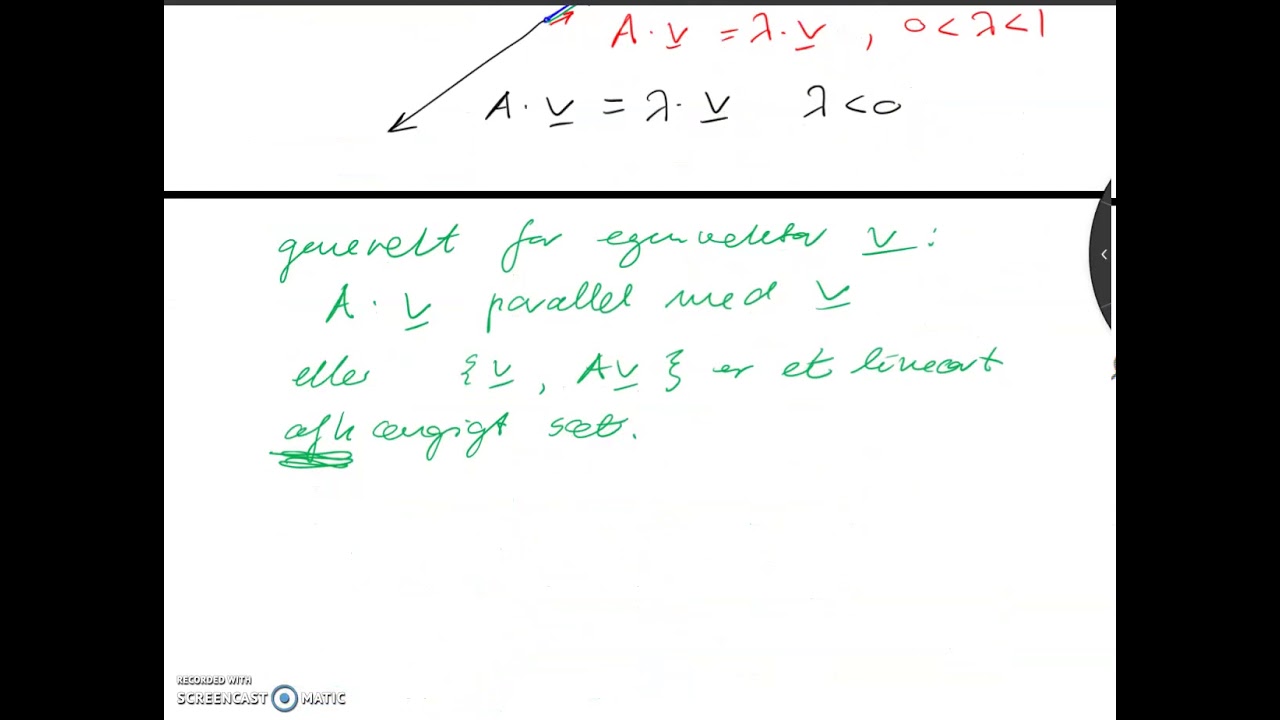 A · v = λ · v , 0 < λ < 1
A · v = λ · v λ < 0
generelt for egenvektor v :
A · v parallel med v
eller { v , Av } er et lineært
afhængigt sæt.
RECORDED WITH
SCREENCAST MATIC